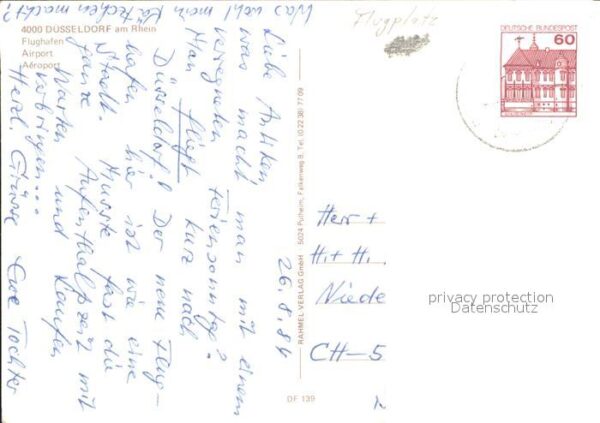 4000 DÜSSELDORF am Rhein
Flughafen
Airport
Aéroport
Flugplatz
DEUTSCHE BUNDESPOST
60
26.8.86
Liebe
was macht man mit einem
verregneten Feriensonntag?
Man fliegt kurz nach
Düsseldorf! Der neue Flug-
hafen hier ist wie eine
Stadt. Musste fast die
ganze Aufenthaltszeit mit
Warten und Laufen
verbringen...
Herzl. Grüsse Eure Tochter
(Was wohl mein
Kätzchen macht?)
RAHMEL VERLAG GmbH 5024 Pulheim, Falkenweg 8, Tel. (0 22 38) 77 09
Herr +
H. + H.
Niede
CH-5
privacy protection
Datenschutz
DF 139